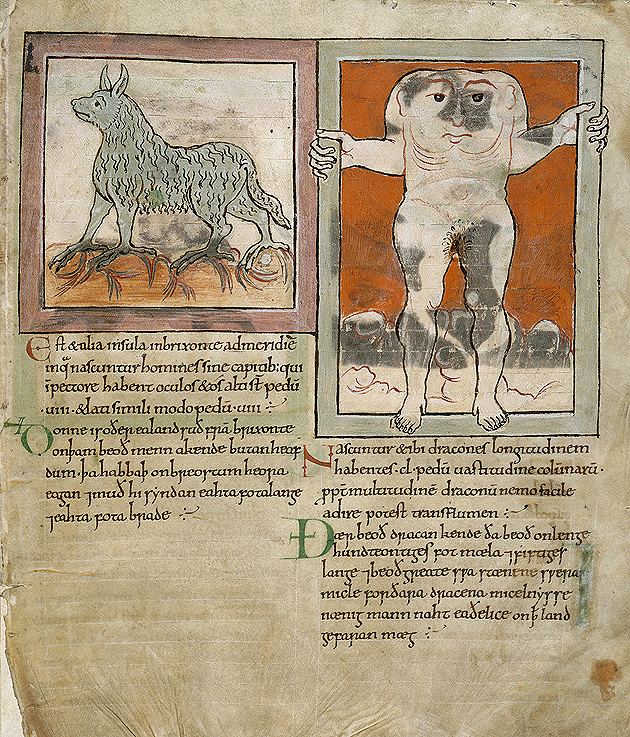 Est & alia insula in brixonte ad meridiē
in q̄ nascuntur homines sine capitib; qui
ī pectore habent oculos & os alti sr̄ pedū
·uiii· & lati simili modo pedū ·uiii·
Ðonne is oðer ealand suð frā brixonte
on þam beoð menn akende butan heaf
dum· þa habbaþ on breostum heora
eagan ⁊ muð hi syndan eahta fota lange
⁊ eahta fota brade
Nascuntur & ibi dracones longitudinem
habentes ·cl· pedū uastitudine colūnarū·
ꝓpt̄ multitudinē draconū nemo facile
adire potest trans flumen
Ðær beoð dracan kende ða beoð on lenge
hundteontiges fot mæla ⁊ fiftiges
lange ⁊ beoð greate sƿa stænene sƿeras
micle for þara dracena micelnysse
nænig mann naht eaðelice on ꝥ land
gefaran mæg